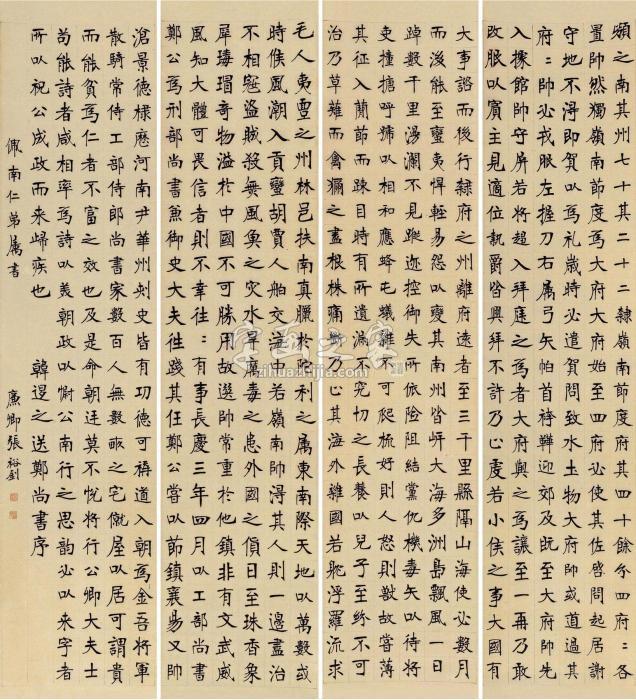 嶺之南其州七十其二十二隸嶺南節度府其四十餘分四府々各
置帥然獨嶺南節度爲大府大府始至四府必使其佐啓問起居謝
守地不得即賀以爲礼歲時必遣賀問致水土物大府帥或道過其
府々帥必戎服左握刀右属弓矢帕首袴鞾迎郊及既至大府帥先
入據館帥守屏若將趨入拜庭之爲者大府與之爲讓至一再乃敢
改服以賓主見適位執爵皆興拜不許乃止虔若小侯之事大國有
大事諮而後行隸府之州離府遠者至三千里縣隔山海使必數月
而後能至蠻夷悍輕易怨以變其南州皆岸大海多洲島飄風一日
踔數千里漫瀾不見蹤迹控御失所依險阻結黨仇機毒矢以待將
吏撞搪呼號以相和應蜂屯蟻雜不可爬梳好則人怒則獸故嘗薄
其征入簡節而疎目時有所遺漏不究切之長養以兒子至紛不可
治乃草薙而禽獮之盡根株痛斷乃止其海外雜國若耽浮羅流求
毛人夷亶之州林邑扶南真臘于陀利之属東南際天地以萬數或
時候風潮入貢蠻胡賈人舶交海中若嶺南帥得其人則一邊盡治
不相寇盜賊殺無風魚之灾水旱癘毒之患外國之貨日至珠香象
犀瑇瑁奇物溢於中國不可勝用故選帥常重於他鎮非有文武威
風知大體可畏信者則不幸往々有事長慶三年四月以工部尚書
鄭公爲刑部尚書兼御史大夫往踐其任鄭公嘗以節鎮襄陽又帥
滄景德棣歷河南尹華州刺史皆有功德可稱道入朝爲金吾將軍
散騎常侍工部侍郎尚書家數百人無數畝之宅僦屋以居可謂貴
而能貧爲仁者不富之效也及是命朝廷莫不悅將行公卿大夫士
苟能詩者咸相率爲詩以美朝政以慰公南行之思韵必以來字者
所以祝公成政而來歸疾也 韓退之送鄭尚書序
佩南仁弟属書 廉卿張裕釗
字画之家
zihuazhijia.com